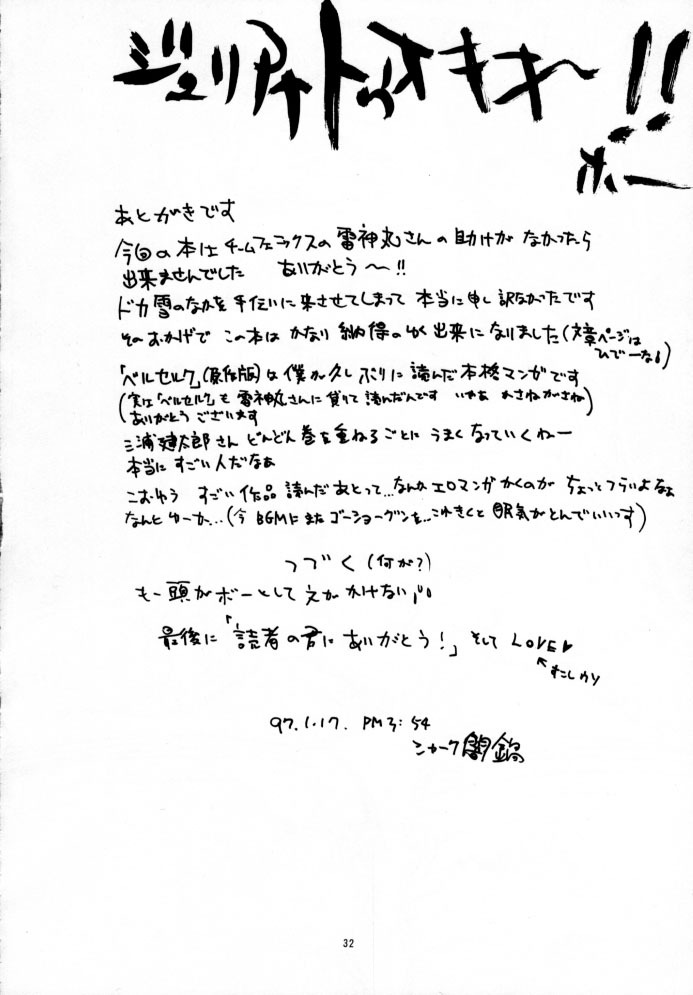 ジュリアナトゥオキキ〜!!
ホー
あとがきです
今回の本は チームフェニックスの雷神丸さんの助けが なかったら
出来ませんでした ありがとう〜!!
ドカ雪のなかを手伝いに来させてしまって 本当に申し訳なかったです
そのおかげで この本は かなり 納得のゆく出来に なりました(文章ページは
ひでーなぁ)
「ベルセルク」(原作版)は僕が久しぶりに読んだ本格マンガです
(実は「ベルセルク」も 雷神丸さんに貸りて読んだんです いやぁ かさねがさね)
(ありがとう ございます)
三浦建太郎さん どんどん巻を重ねるごとに うまくなっていくねー
本当に すごい人だなぁ
こおゆう すごい作品 読んだあとって…なんかエロマンガ かくのが ちょっとつらいよなぁ
なんと ゆーか…(今 BGMに またゴーショーグンを…これきくと 眠気がとんでいいっす)
つづく(何が?)
もー頭がボーとして えが かけない
最後に「読者の君にありがとう!」そして LOVE♥
97.1.17. PM3:54
シャーク闇鍋
32